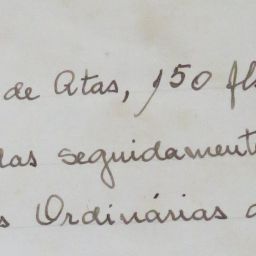 de Atas, 150 fls
das seguidament
s Ordinárias d